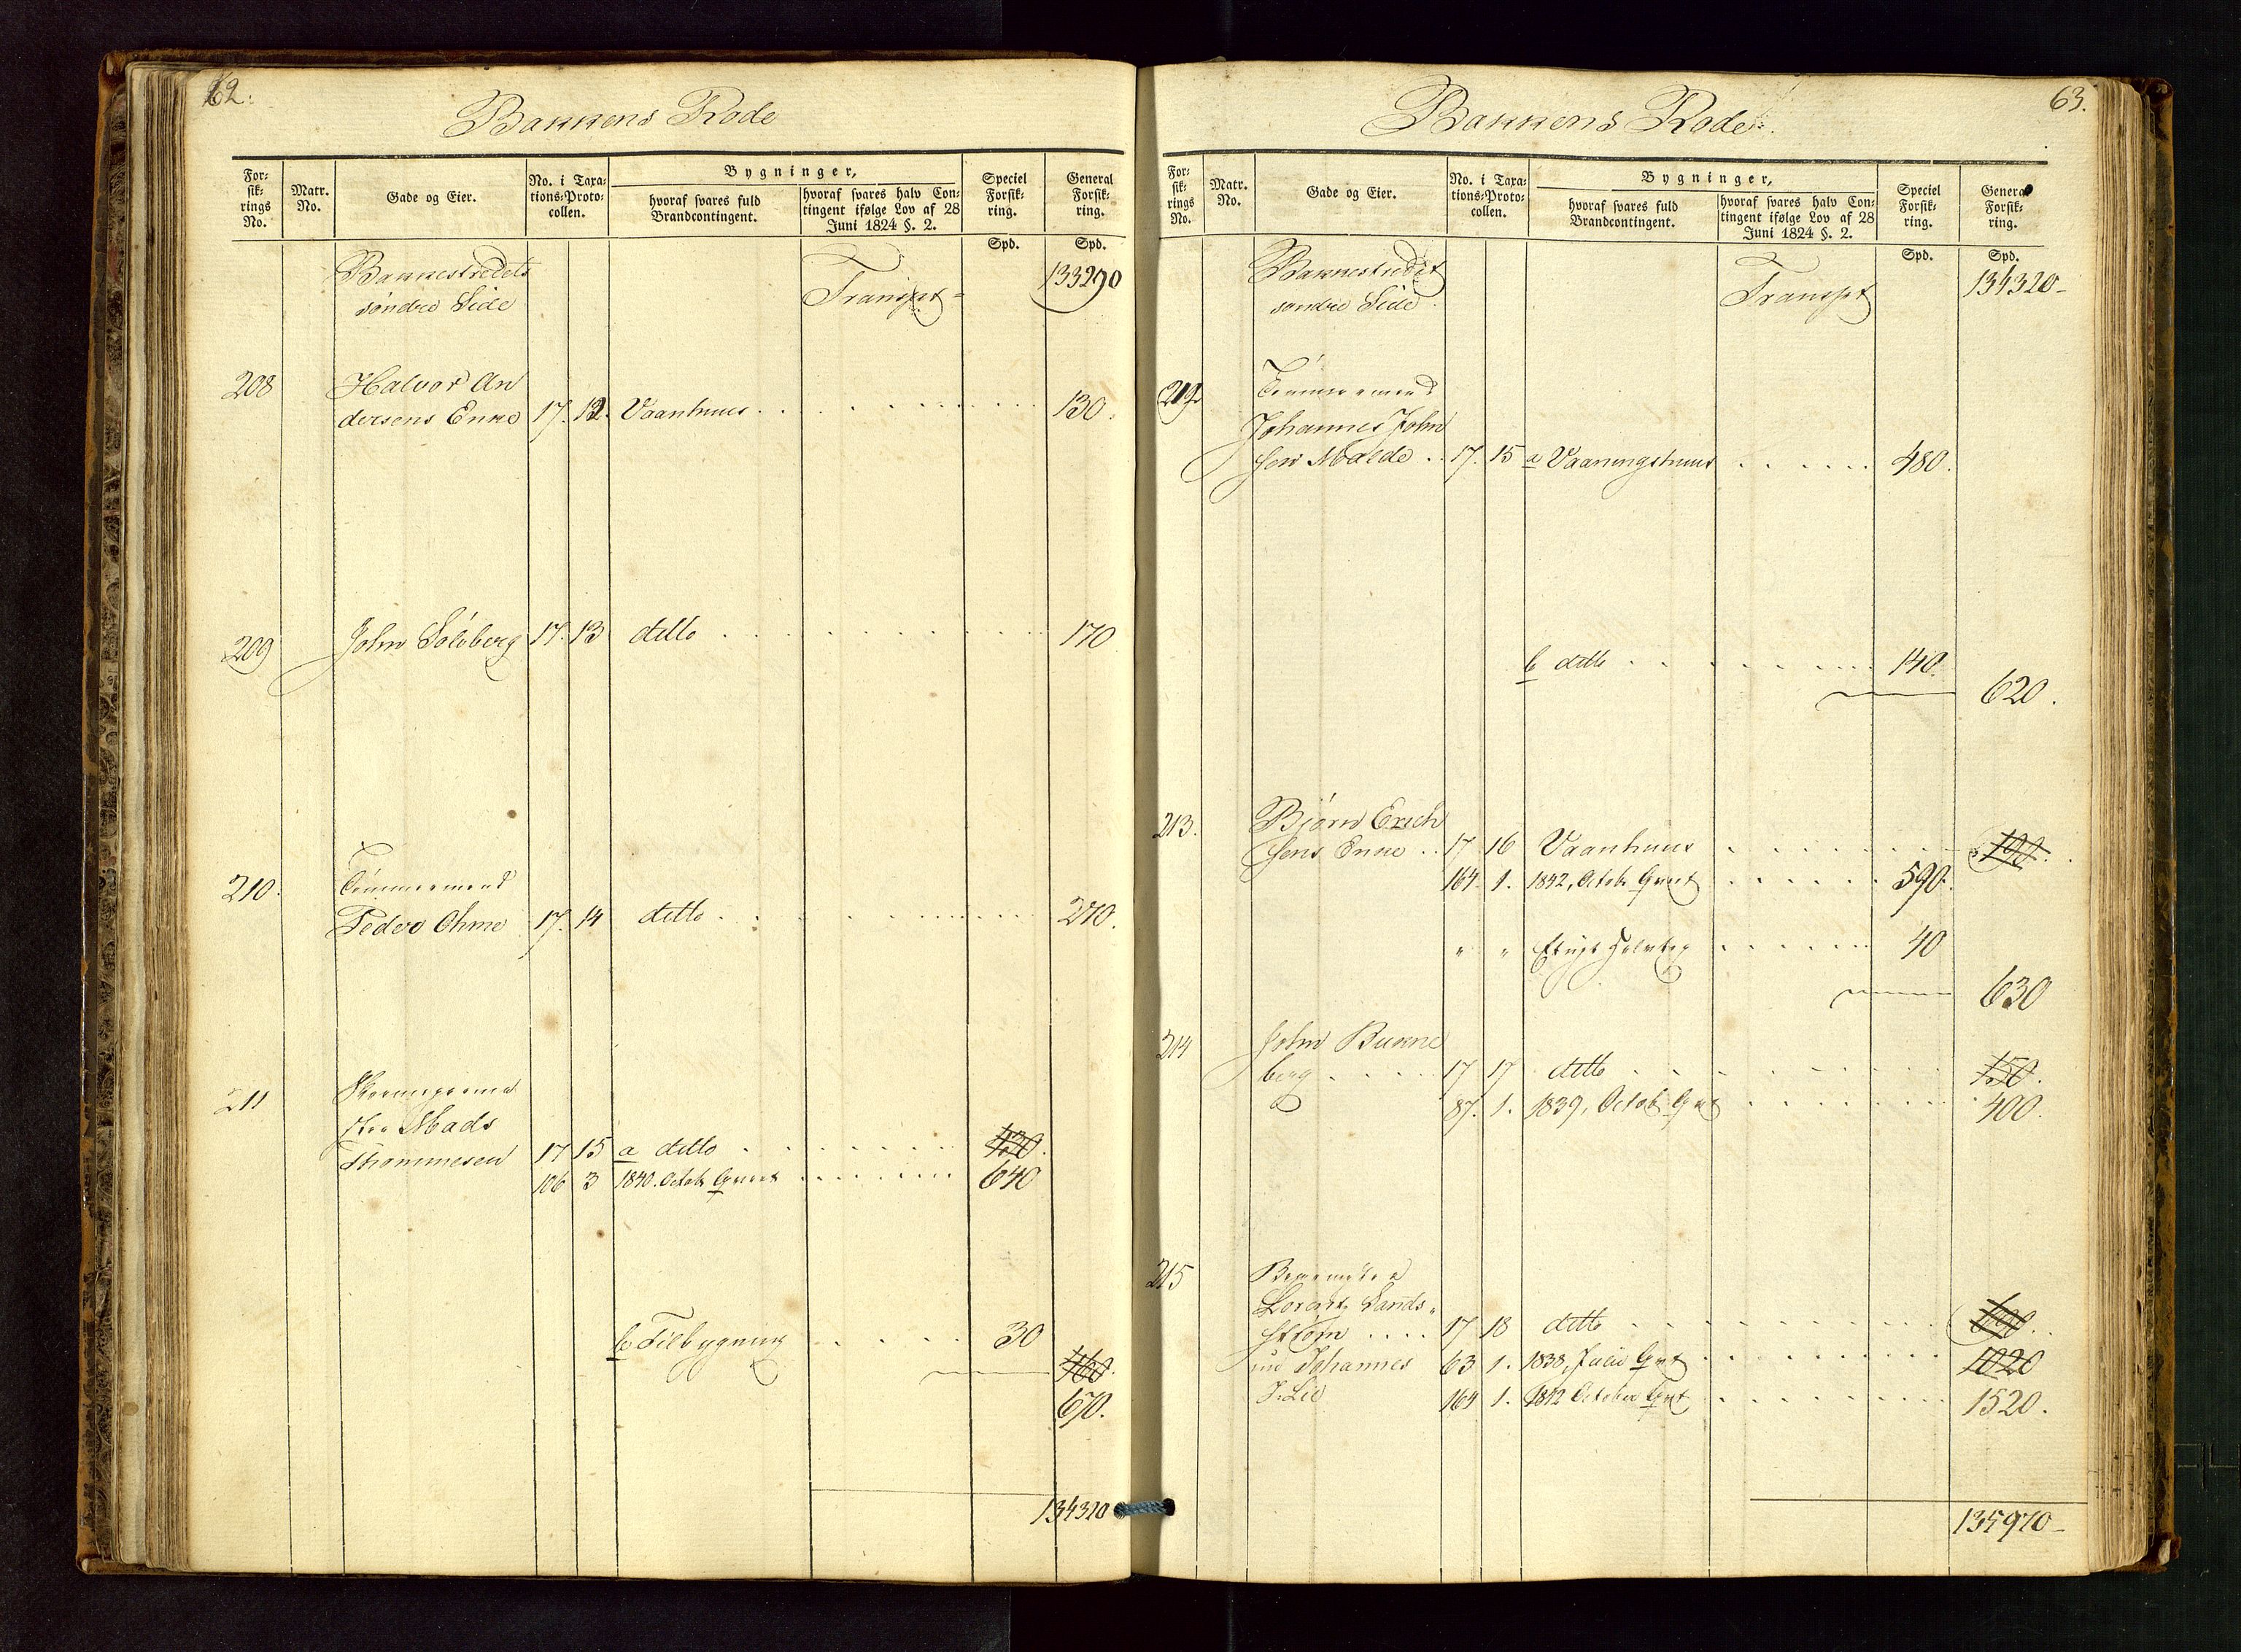 62.
Bakkens Rode
For-
sik-
rings
No.
Matr.
No.
Gade og Eier.
No. i Taxa-
tions-Proto-
collen.
Bygninger,
hvoraf svares fuld
Brandcontingent.
hvoraf svares halv Con-
tingent ifølge Lov af 28
Juni 1824 §. 2.
Speciel
Forsik-
ring.
General
Forsik-
ring.
Spd.
Spd.
Bakkestrædets
søndre Side
Transpt
133290
208 Halvor An
dersens Enke 17. 12. Vaanhuus 130.
209 John Soleberg 17. 13 ditto 170
210. Tømmermand
Peder Ohme 17. 14 ditto 270.
211
Mads
Thommesen 17 15 a ditto 430.
106 3 1840. Octob Qvart 640
b Tilbygning 30
460.
670.
134320
63.
Bakkens Rode
For-
sik-
rings
No.
Matr.
No.
Gade og Eier.
No. i Taxa-
tions-Proto-
collen.
Bygninger,
hvoraf svares fuld
Brandcontingent.
hvoraf svares halv Con-
tingent ifølge Lov af 28
Juni 1824 §. 2.
Speciel
Forsik-
ring.
General
Forsik-
ring.
Spd.
Spd.
Bakkestrædet
søndre Side
Transpt
134320
212 Tømmermand
Johannes John
sen Malde 17. 15 a Vaaningshuus 480.
b ditto 140.
620.
213. Bjørn Erich
sens Enke 17 16 Vaanhuus 190.
164. 1. 1842, Octob Qvart 590.
" " 40
630
214 John Bukne
berg 17 17 ditto 150.
87. 1. 1839, Octob Qvt 400.
215
Lorentz Sands-
strøm 17 18 ditto 690.
nu Johannes 63 1. 1838, Julii Qvt 1020
J. Lie 164 1. 1842 October Qvt 1520.
135970